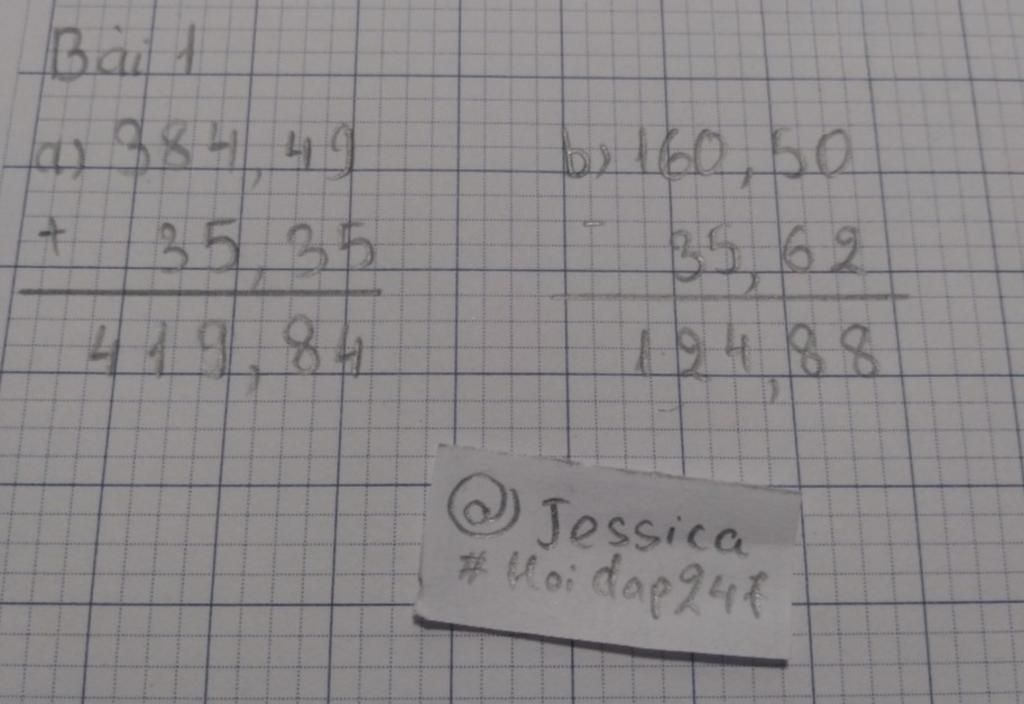 Bài 1
a) 384,49
+ 35,35
419,84
b) 160,50
- 35,62
124,88
@ Jessica
# Hoidap247